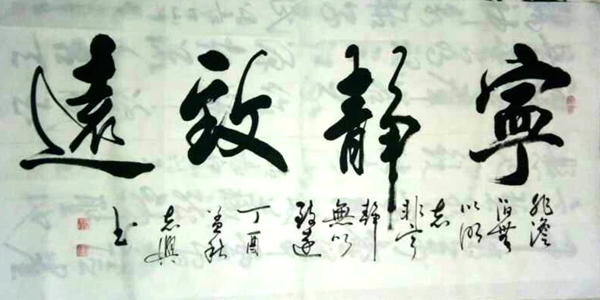 寧静致遠
非澹
泊無
以明
志
非寧
静
無以
致遠
丁酉
孟秋
志興
书